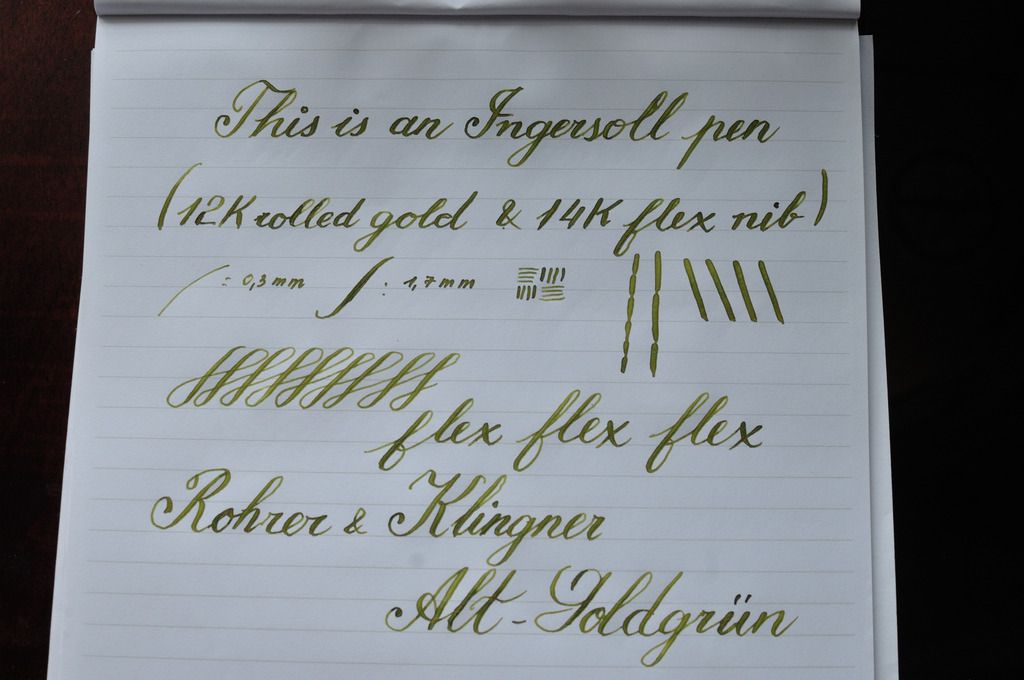 This is an Ingersoll pen
(12K rolled gold & 14K flex nib)
: 0,3 mm : 1,7 mm
flex flex flex
Rohrer & Klingner
Alt-Goldgrün